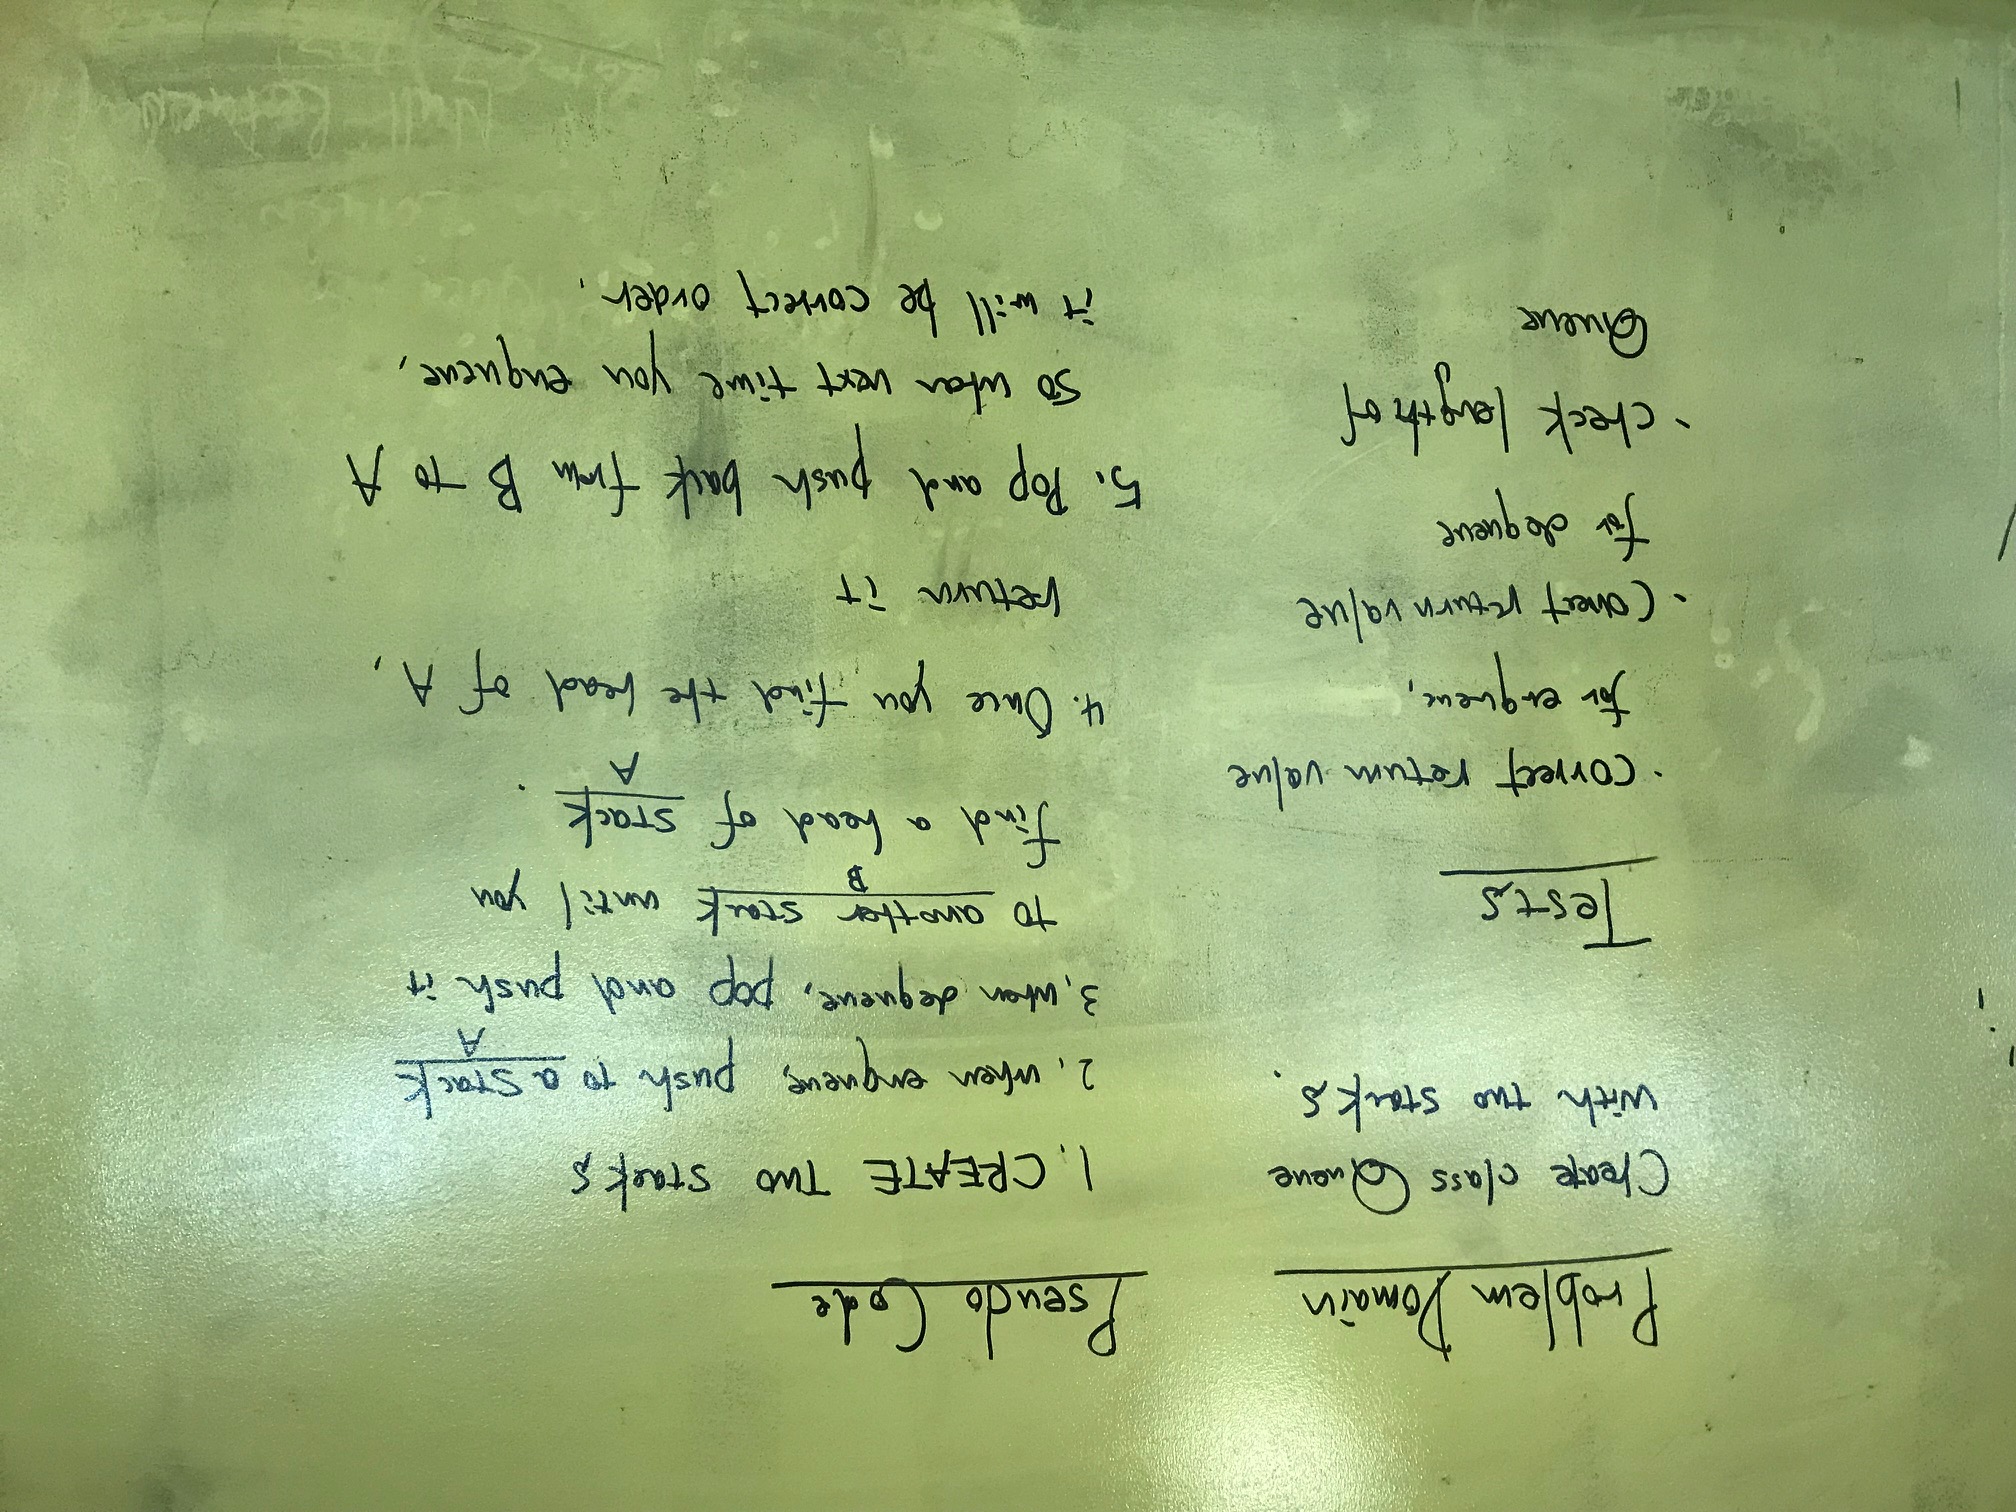 Problem Domain
Create class Queue
with two stacks.
Tests
· correct return value
for enqueue,
· correct return value
for dequeue
· check length of
Queue
Pseudo Code
1. CREATE TWO stacks
2. when enqueue, push to a stack
A
3. when dequeue, pop and push it
to another stack until you
B
find a head of stack.
A
4. Once you find the head of A,
return it
5. Pop and push back from B to A
so when next time you enqueue,
it will be correct order.
Null